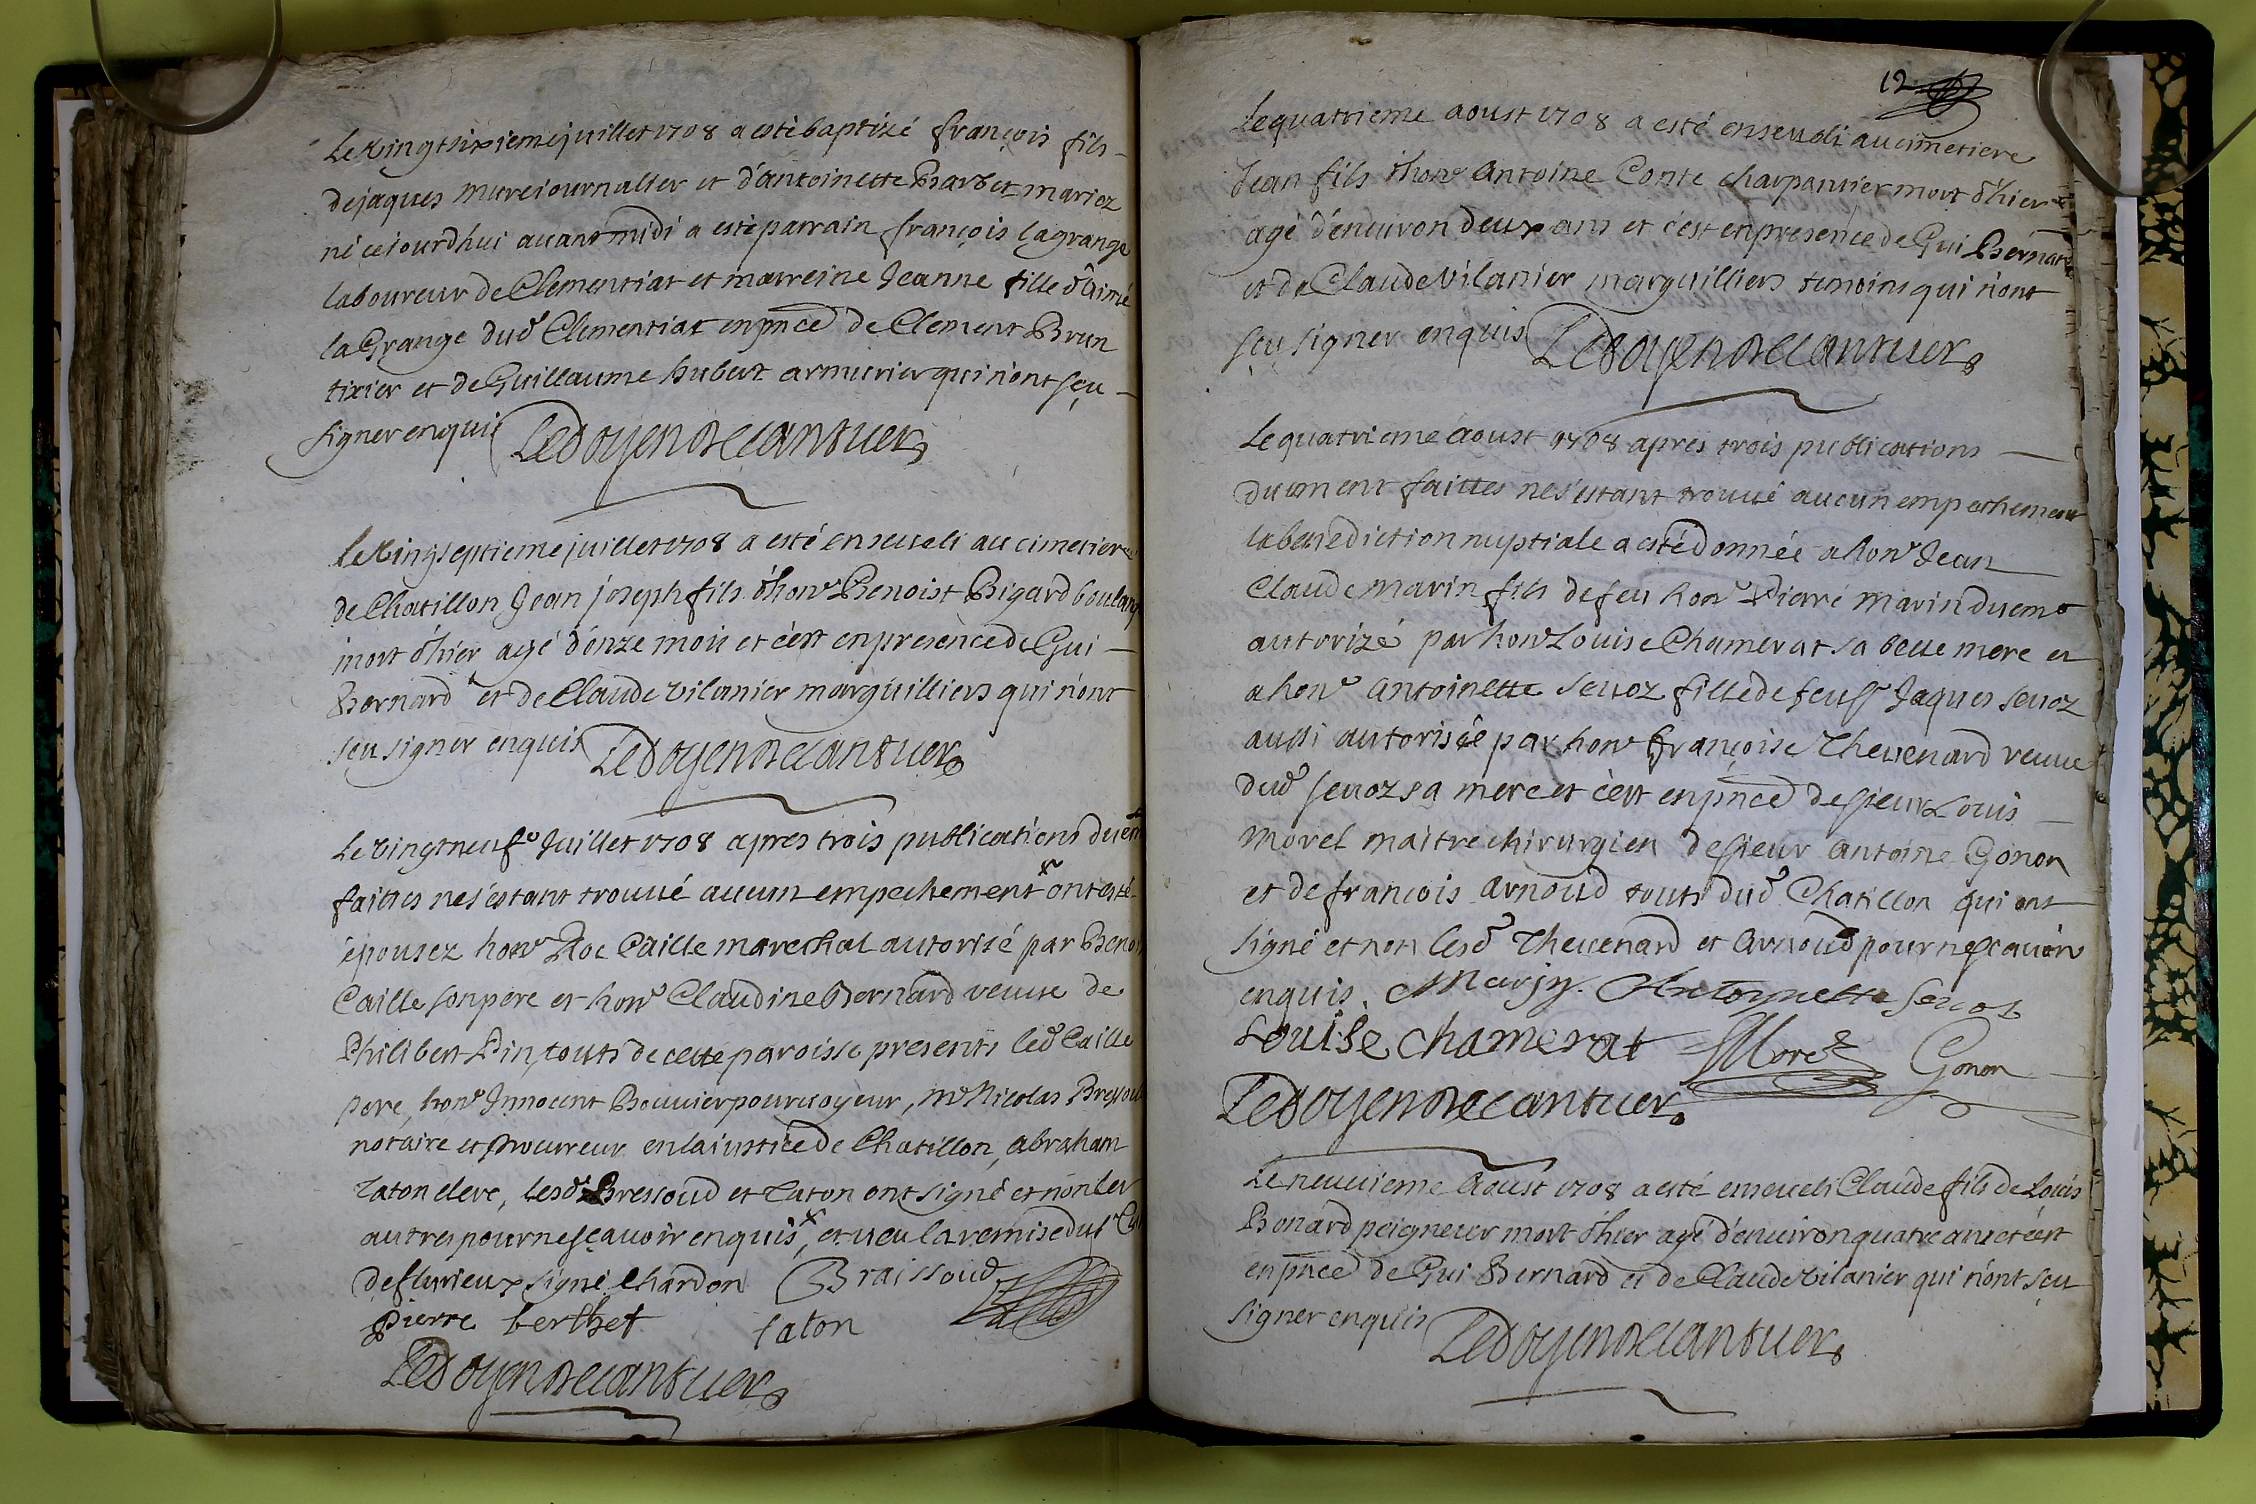 Le vingtsixieme juillet 1708 a esté baptizé françois fils
de jaques mure journallier et d'antoinette Barbet mariez
né cejourdhui avant midi a esté parrain françois lagrange
laboureur de Clementiat et marreine Jeanne fille d'Aimé
la Grange dud Clementiat en pnce de Clement Brun
tixier et de Guillaume hubert armurier qui n'ont sçu
signer enquis Ledoyen de cantuer
Le vingtseptieme juillet 1708 a esté enseveli au cimetiere
de Chatillon Jean joseph fils d'honr Benoist Bigard boulang
mort d'hier agé d'onze mois et c'est en presence de Gui
Bernard et de Claude vilanier marguilliers qui n'ont
sçu signer enquis Ledoyen de cantuer
Le vingtneufe Juillet 1708 apres trois publications duem
faittes ne s'estant trouvé aucun empechement x ont esté
épousez honr Roc Caille marechal autorisé par Benoi
Caille son pere et honr Claudine Bernard veuve de
Philibert Pin, touts de cette paroisse presents led Caille
pere, honr Innocent Bouvier pourvoyeur, mr Nicolas Bressoud
notaire et procureur en la justice de Chatillon, abraham
Taton clerc, lesd Bressoud et Taton ont signé et non les
autres pour ne sçavoir enquis x, et veu la remise du sr Cu
de fleurieux signé Chardon Braissoud
pierre berthet taton
Ledoyen de cantuer
12
Le quatrieme aoust 1708 a esté enseveli au cimetiere
Jean fils d'honr Antoine Conte charpantier mort d'hier
agé d'environ deux ans et c'est en presence de Gui Bernard
et de Claude vilanier marguilliers temoins qui n'ont
sçu signer enquis Ledoyen de cantuer
Le quatrieme aoust 1708 apres trois publications
duement faittes ne s'estant trouvé aucun empechement
la benediction nuptiale a esté donnée a honr Jean
Claude Marin fils de feu honr Pierre Marin duemt
autorizé par honr Louise Chamerat sa belle mere et
a honr Antoinette Sevoz fille de feu sr Jaques Sevoz
aussi autorisée par honr françoise Thevenard veuve
dud Sevoz sa mere et c'est en pnce de sieur Louis
Morel maitre chirurgien de sieur Antoine Gonon
et de françois Arnoud touts dud Chatillon qui ont
signé et non lesd Thevenard et Arnoud pour ne sçavoir
enquis. Marin. Antoynette Sevos
Louise chamerat Morel Gonon
Ledoyen de cantuer
Le neuvieme Aoust 1708 a esté enseveli Claude fils de Louis
Bonard peigneur mort d'hier agé d'environ quatre ans et c'est
en pnce de Gui Bernard et de Claude vilanier qui n'ont sçu
signer enquis Ledoyen de cantuer